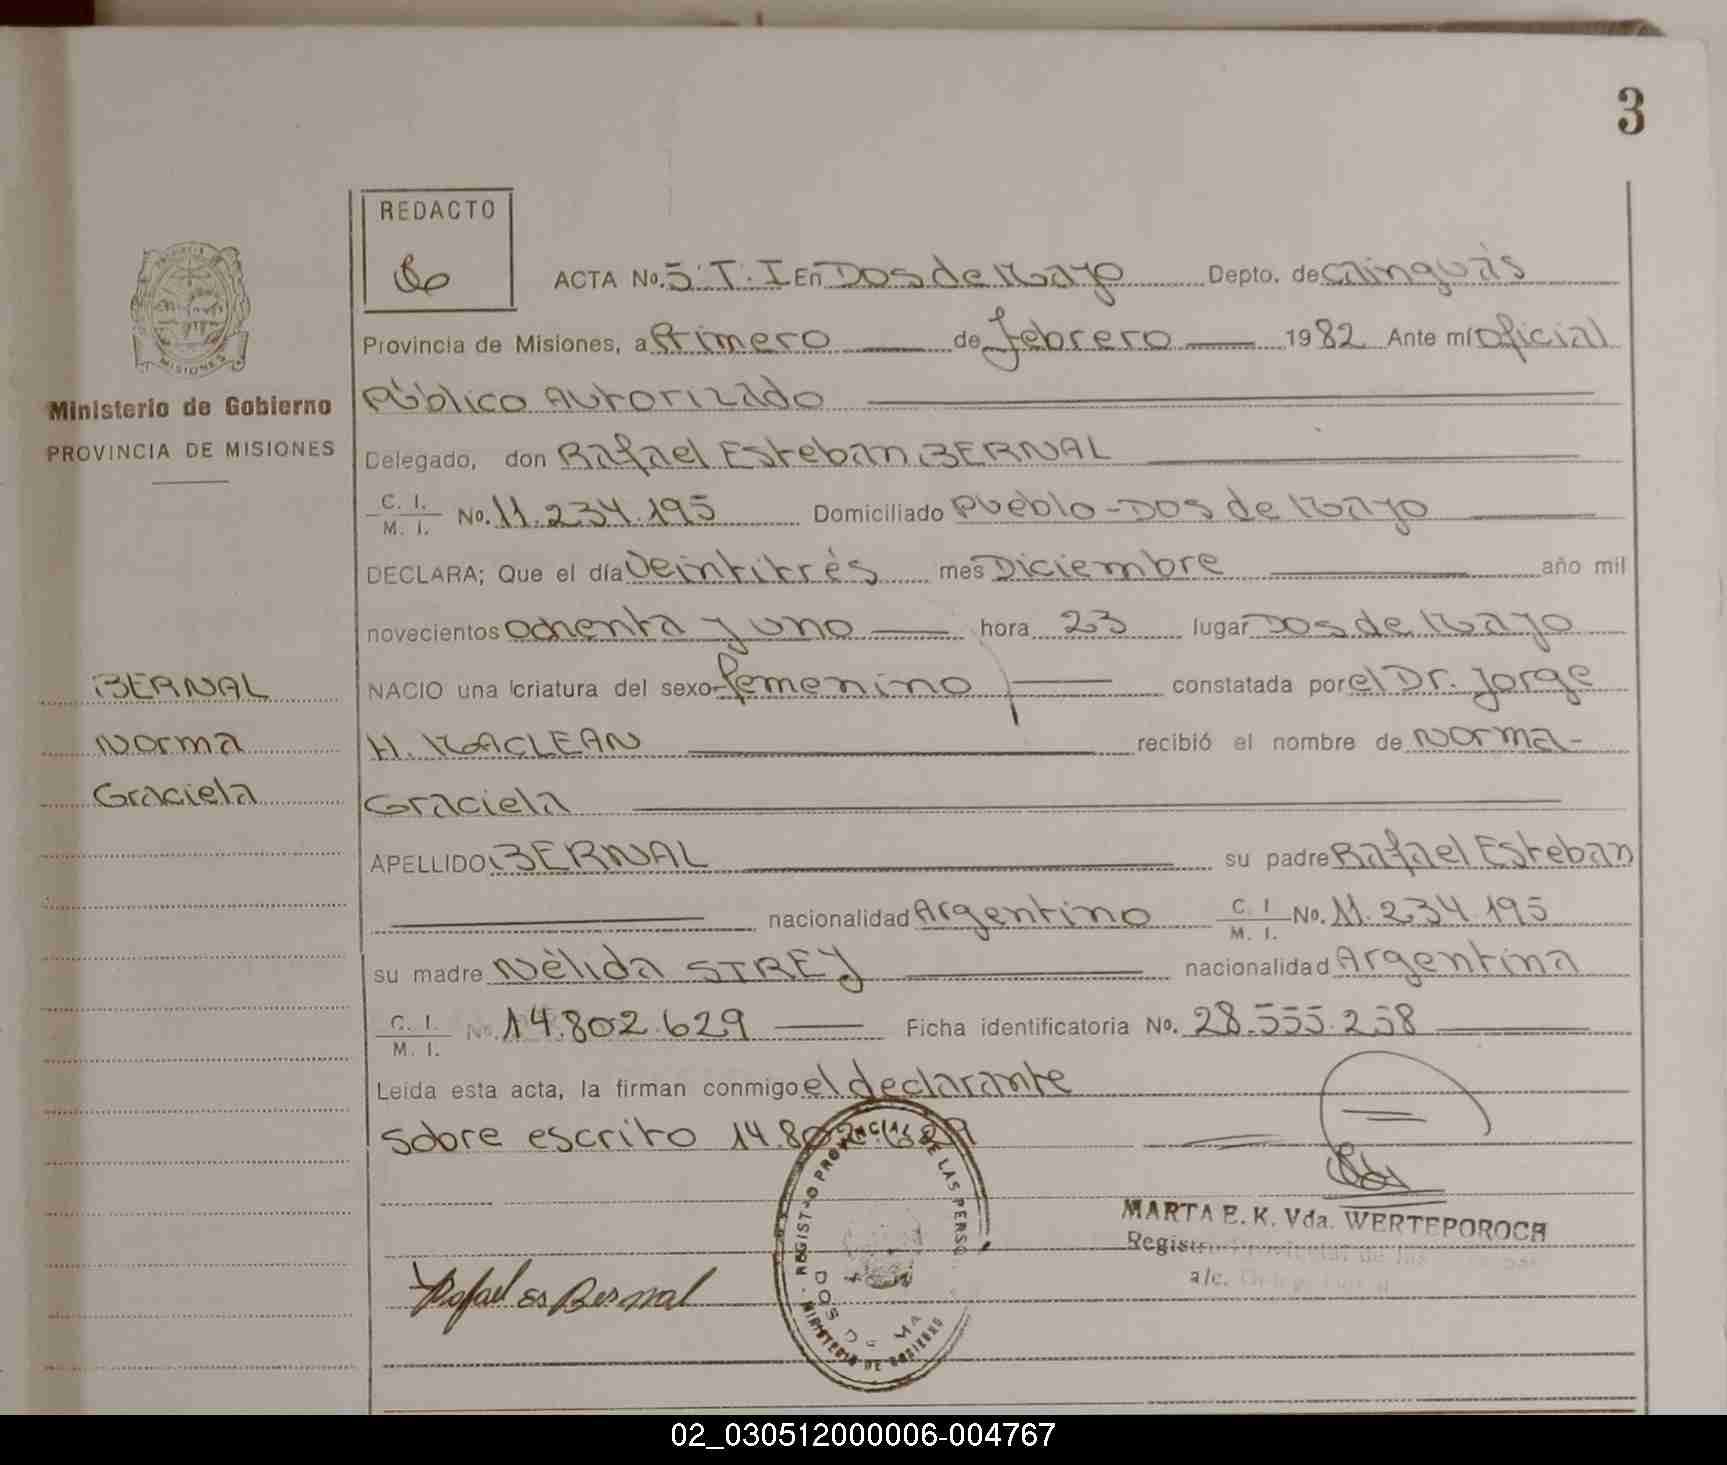 3
REDACTO
ACTA No. 5 T. I En Dos de Mayo Depto. de Cainguás
Provincia de Misiones, a Primero de febrero 1982 Ante mí oficial
Público Autorizado
Ministerio de Gobierno
PROVINCIA DE MISIONES
Delegado, don Rafael Esteban BERNAL
C. I. M. I. No. 11.234.195 Domiciliado Pueblo-Dos de Mayo
DECLARA; Que el día Veintitrés mes Diciembre año mil
novecientos ochenta y uno hora 23 lugar Dos de Mayo
BERNAL
Norma
Graciela
NACIO una criatura del sexo femenino constatada por el Dr. Jorge
H. MACLEAN recibió el nombre de Norma-
Graciela
APELLIDO BERNAL su padre Rafael Esteban
nacionalidad Argentino C. I M. I. No. 11.234.195
su madre Nélida STREY nacionalidad Argentina
C. I. M. I. No. 14.802.629 Ficha identificatoria No. 28.555.258
Leída esta acta, la firman conmigo el declarante
Sobre escrito 14.802.629
MARTA E. K. Vda. WERTEPOROCH
a/c.
Rafael Es Bernal
REGISTRO PROVINCIAL DE LAS PERSO
DOS DE MA
MINISTERIO DE GOBIERNO
MISIONES
02_030512000006-004767